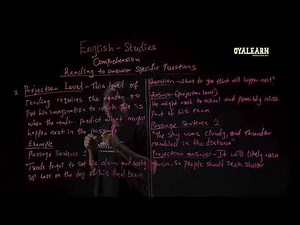 English - Studies
OYALEARN
Comprehension
Reading to answer specific Questions
* Projection Level - This level of
reading requires the reader to
put his imagination to work this is
when the reader predict what might
happen next in the
Example
Passage Sentence 1
Tunde forgot to set his alarm and
up late on the day of his final Exam
Question - What do you think will happen next?
Answer - (Projection level)
He might rush to school and possibly miss
part of his exam
Passage Sentence 2
The sky was cloudy, and thunder
rumbled in the distance
Projection answer - It will likely
so people should seek shelter